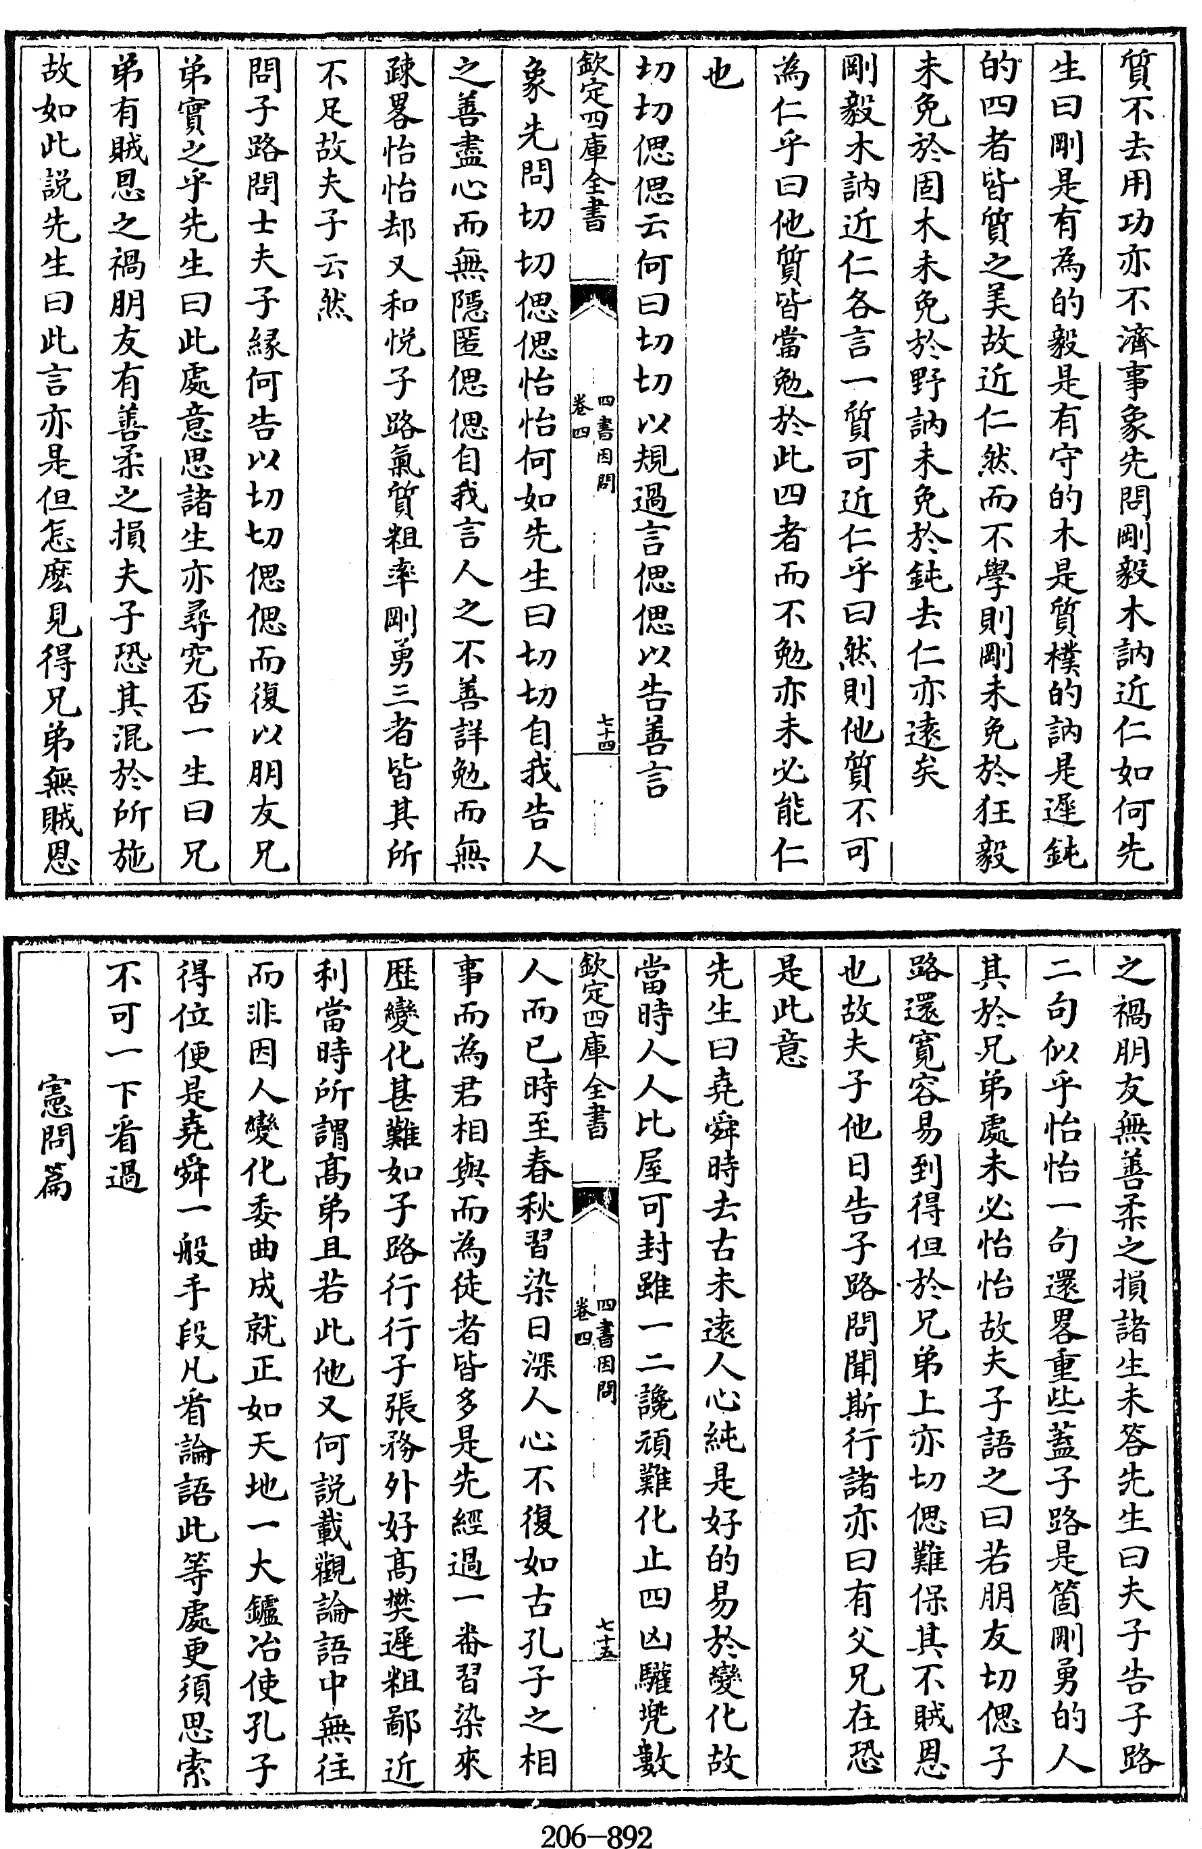 質不去用功亦不濟事象先問剛毅木訥近仁如何先
生曰剛是有為的毅是有守的木是質樸的訥是遲鈍
的四者皆質之美故近仁然而不學則剛未免於狂毅
未免於固木未免於野訥未免於鈍去仁亦遠矣
剛毅木訥近仁各言一質可近仁乎曰然則他質不可
為仁乎曰他質皆當勉於此四者而不勉亦未必能仁
也
切切偲偲云何曰切切以規過言偲偲以告善言
欽定四庫全書
四書因問
卷四
七十四
象先問切切偲偲怡怡何如先生曰切切自我告人
之善盡心而無隱匿偲偲自我言人之不善詳勉而無
疎畧怡怡却又和悦子路氣質粗率剛勇三者皆其所
不足故夫子云然
問子路問士夫子緣何告以切切偲偲而復以朋友兄
弟實之乎先生曰此處意思諸生亦尋究否一生曰兄
弟有賊恩之禍朋友有善柔之損夫子恐其混於所施
故如此説先生曰此言亦是但怎麽見得兄弟無賊恩
之禍朋友無善柔之損諸生未答先生曰夫子告子路
二句似乎怡怡一句還畧重些蓋子路是箇剛勇的人
其於兄弟處未必怡怡故夫子語之曰若朋友切偲子
路還寛容易到得但於兄弟上亦切偲難保其不賊恩
也故夫子他日告子路問聞斯行諸亦曰有父兄在恐
是此意
先生曰堯舜時去古未遠人心純是好的易於變化故
當時人人比屋可封雖一二讒頑難化止四凶驩兜數
欽定四庫全書
四書因問
卷四
七十五
人而已時至春秋習染日深人心不復如古孔子之相
事而為君相與而為徒者皆多是先經過一番習染來
歴變化甚難如子路行行子張務外好高樊遲粗鄙近
利當時所謂高弟且若此他又何説載觀論語中無往
而非因人變化委曲成就正如天地一大鑪冶使孔子
得位便是堯舜一般手段凡看論語此等處更須思索
不可一下看過
憲問篇
206-892